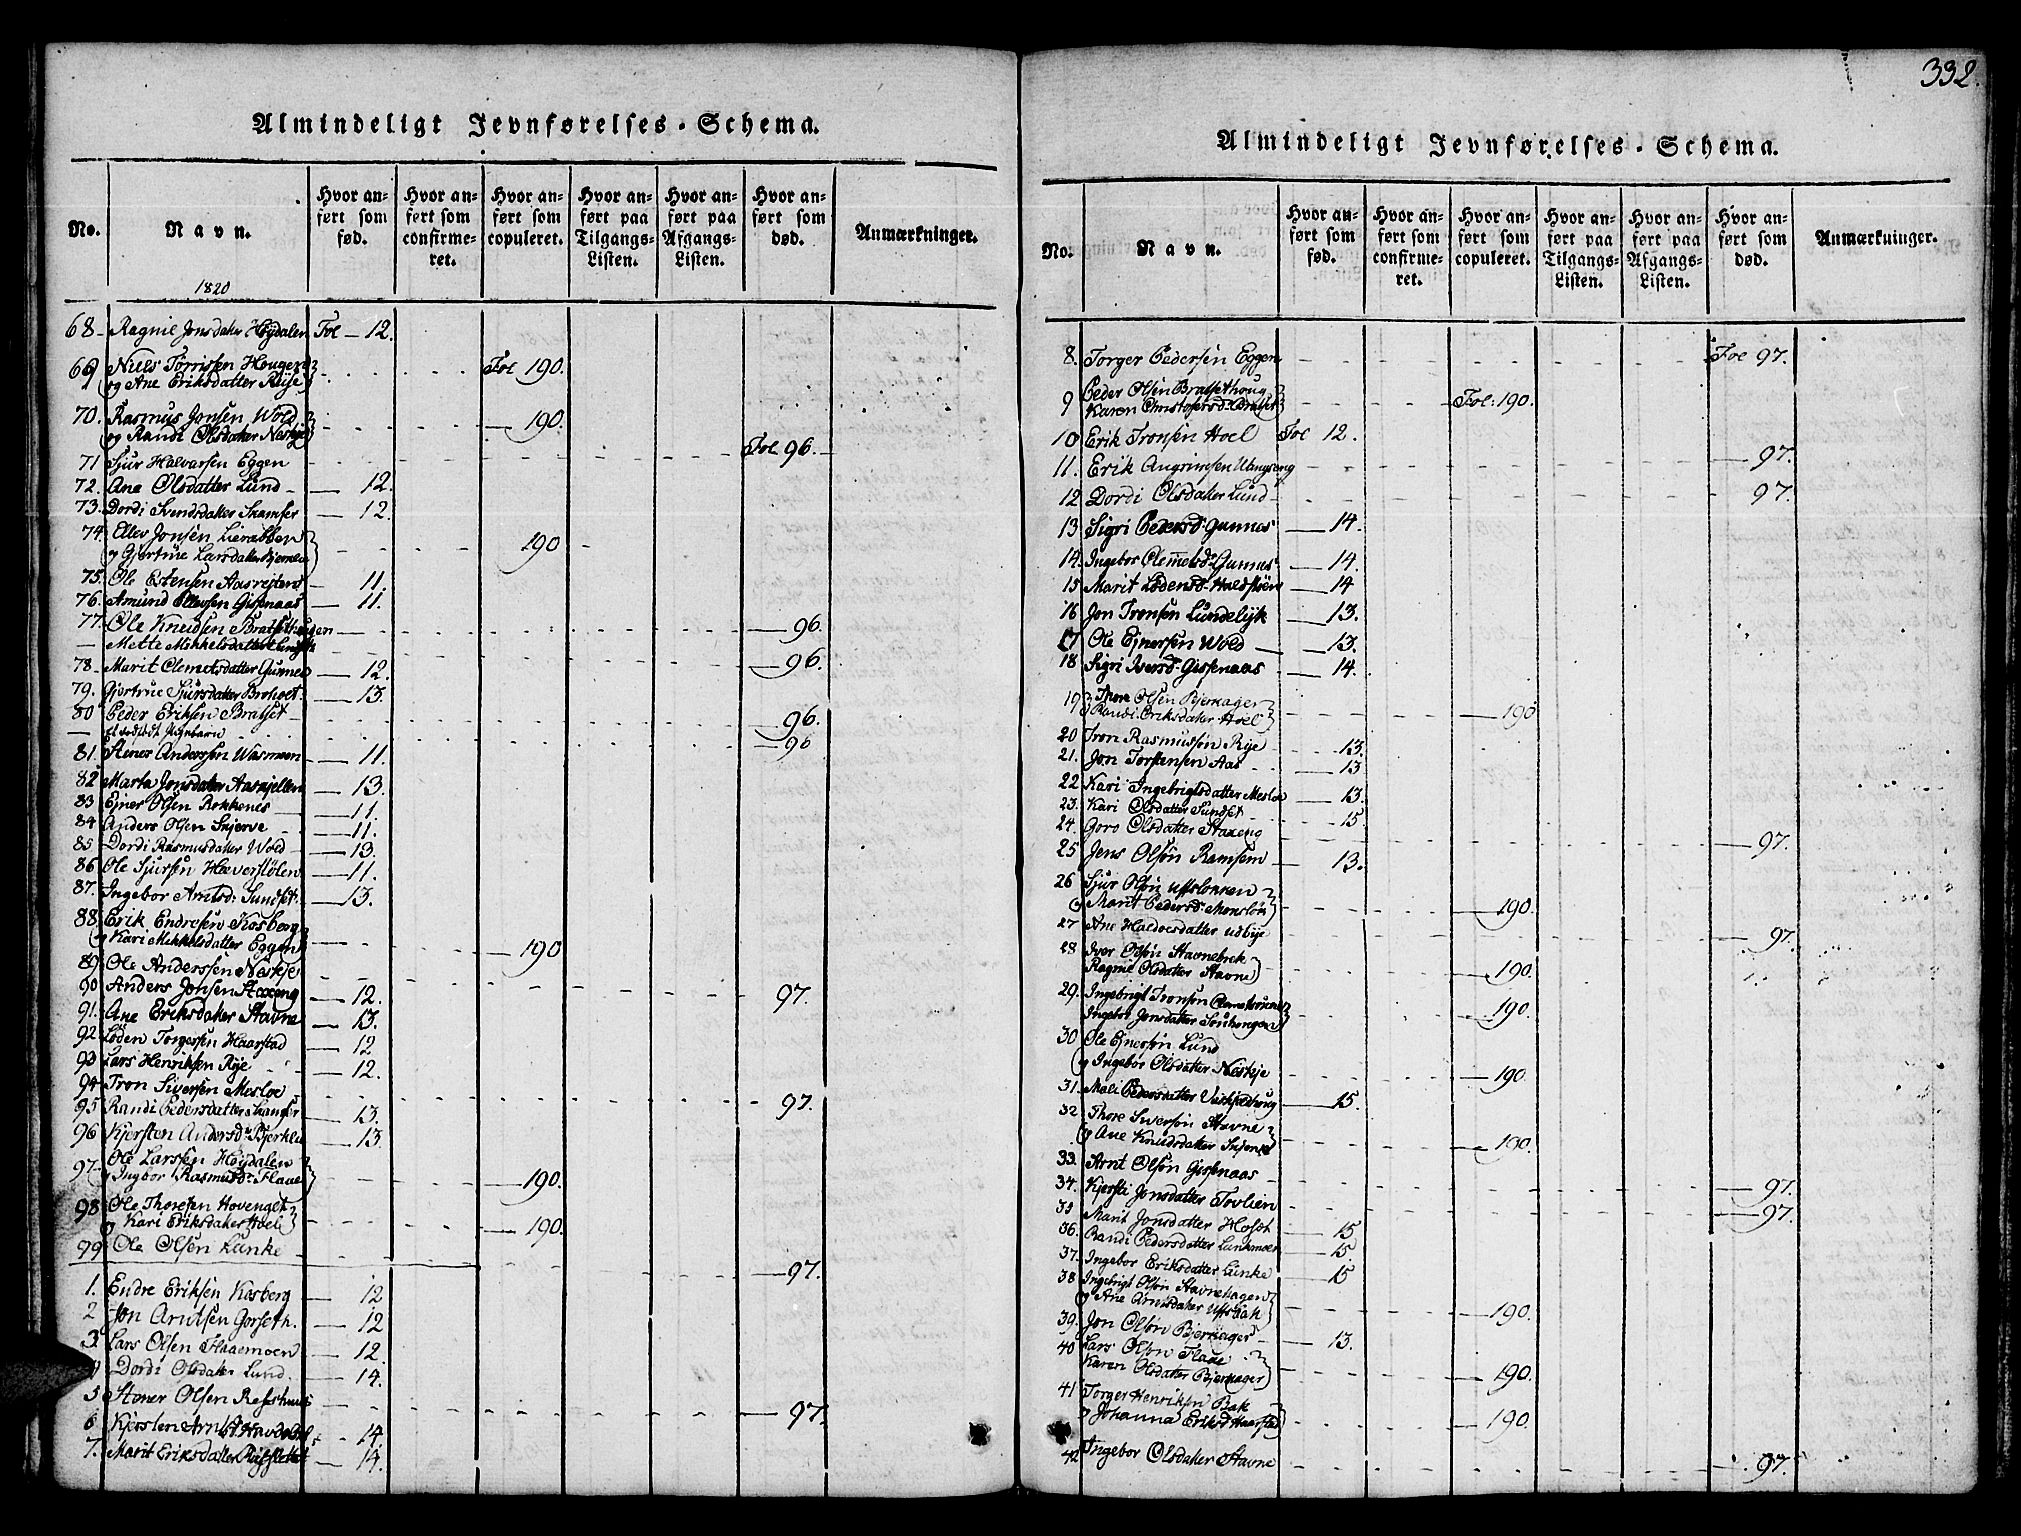 Almindeligt Jevnførelses-Schema.
No.
Navn.
Hvor anført som fød.
Hvor anført som confirmeret.
Hvor anført som copuleret.
Hvor anført paa Tilgangs-Listen.
Hvor anført paa Afgangs-Listen.
Hvor anført som død.
Anmærkninger.
1820
68 - Ragnil Jonsdatter Høydalen Fol - 12.
69 Niels Torrissen Hougen
og Ane Eriksdatter Rÿe Fol 190.
70. Rasmus Jonsen Wold
og Randi Olsdatter Neskje 190.
71 Sjur Halvarsen Eggen Fol 96.
72. Ane Olsdatter Lund 12.
73. Dordi Svendsdatter Skamfer 12.
74. Ellev Jonsen Lieràbben
og Gjertrue Larsdatter 190
75. Ole Estensen 11.
76. Amund Ellevsen Gisenaas 11.
77. Ole Knudsen Bratsethougen 96.
Mette Mikkelsdatter 96.
78. Marit Clemetsdatter Gunnes 12.
79. Gjertrue Sjursdatter Broholt 13.
80 Peder Eriksen Bratset 96.
96
81. Anderssen 11.
82 Marta Jonsdatter 13.
83 Ejner Olsen 11.
84 Anders Olsen Skjerve 11.
85 Dordi Rasmusdatter Wold 13.
86 Ole Sjursen Hæverstølen 11.
87. Ingebor Arntsd: Sundset 13.
88. Erik Endresen Kosberg
og Kari Mikkelsdatter Eggen 190
89. Ole Anderssen Neskje 97.
90 Anders Jonsen Staxeng 12.
91. Ane Eriksdatter Stavne 13.
92 Loden Torgersen Haarstad 12
93 Lars Henriksen Rÿe 12.
94 Tron Siversen Mesloe 97.
95 Randi Pedersdatter Skamfer 13.
96 Kjersten Andersd: 13
97. Ole Larssen Høydalen
og Ingbor Rasmusd: Flaae 190.
98 Ole Thoresen Hovenget
og Kari Eriksdatter Hoel 190.
99. Ole Olsen Lunke 97.
1. Endre Eriksen Kosberg 12
2 Jon Arntsen Gorseth. 12
3 Lars Olsen Flaaemoen 12.
Dordi Olsdatter Lund. 14.
5 Stener Olsen 97.
6 14
7. Marit Eriksdatter 14.
332.
Almindeligt Jevnførelses-Schema.
No.
Navn.
Hvor anført som fød.
Hvor anført som confirmeret.
Hvor anført som copuleret.
Hvor anført paa Tilgangs-Listen.
Hvor anført paa Afgangs-Listen.
Hvor anført som død.
Anmærkninger.
8. Torger Pedersen Eggen Fol 97.
9 Peder Olsen Bratsethoug
Karen Christofersd: Bratset Fol: 190.
10 Erik Tronsen Hoel Fol 12.
11. Erik Angrimsen 97.
12 Dordi Olsdatter Lund 97.
13 Sigri Pedersd: Gunnes 14.
14. Ingebor Clemetsd: Gunnes 14.
15 Marit Lodensd: 14
16 Jon Tronsen 13.
17 Ole Ejnersen Wold 13.
18 Sigri Iversd: Gisenaas 14.
19 Thore Olsen Bjerkager
Randi Eriksdatter Hoel 190
20 Tron Rasmussøn Rÿe 13.
21. Jon Torstensen Aas 13
22 Kari Ingebrigtsdatter Mesloe 13.
23. Kari Olsdatter Sundset 15.
24. Goro Olsdatter Staxeng 97.
25 Jens Olsøn Ramsem 13.
26 Sjur Olsøn
og Marit Pedersd: 190.
27 Ane 97.
28 Iver Olsøn Stavnebrek
Ragnil Olsdatter Stavne 190.
29. Ingebrigt Tronsøn
Ingebor Jonsdatter 190.
30 Ole Ejnersøn Lund
og Ingebor Olsdatter Neskje 190
31. Mali Pedersdatter 15.
32 Thore Siversøn Stavne
og Ane Knudsdatter 190.
33. Arnt Olsøn Gisenaas 97.
34. Kjersti Jonsdatter Tovlien 97.
35 Marit Jonsdatter 15
36. Randi Pedersdatter 15
37. Ingebor Eriksdatter Lunke 15
38 Ingebrigt Olsøn Stavnehagen
og Ane Arntsdatter 190.
39. Jon Olsøn Bjerkager 13.
40 Lars Olsøn Flaae
Karen Olsdatter Bjerkager 190.
41 Torger Henriksen Bak
og Johanna Eriksd: Haarstad 190.
42 Ingebor Olsdatter Stavne 97.